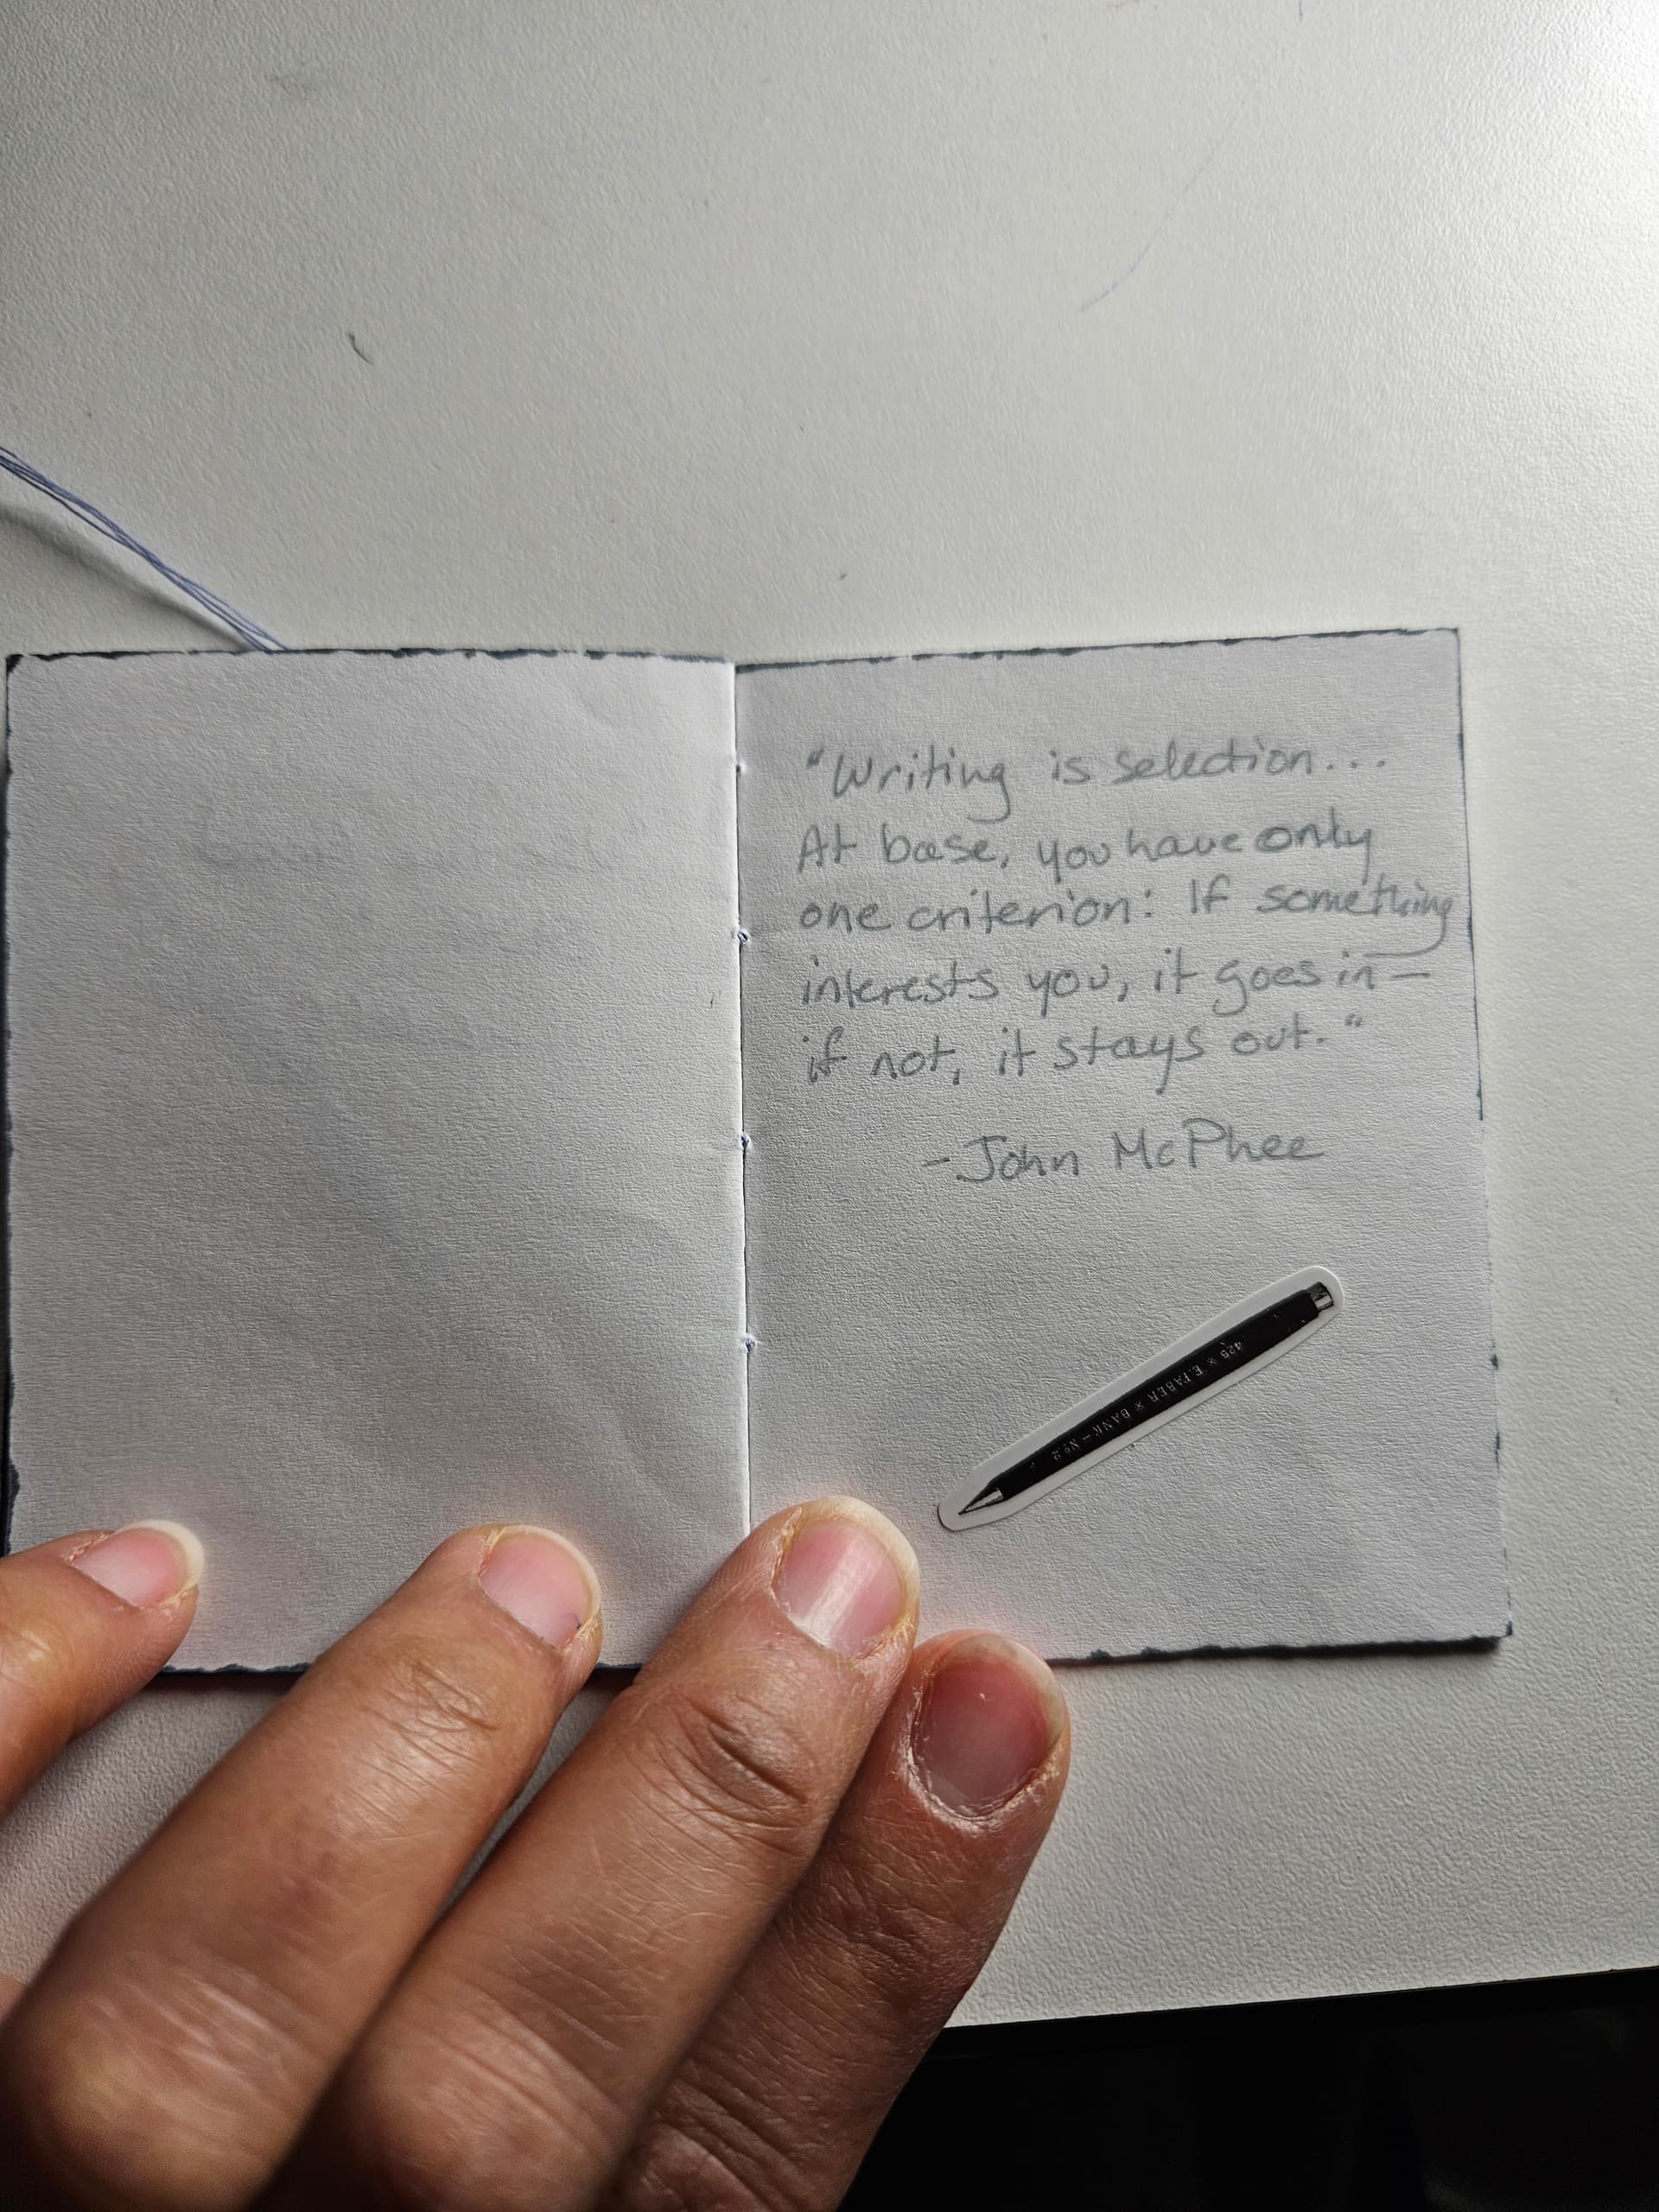 "Writing is selection...
At base, you have only
one criterion: If something
interests you, it goes in—
if not, it stays out."
-John McPhee
425 * E. FABER * BANK - No 2